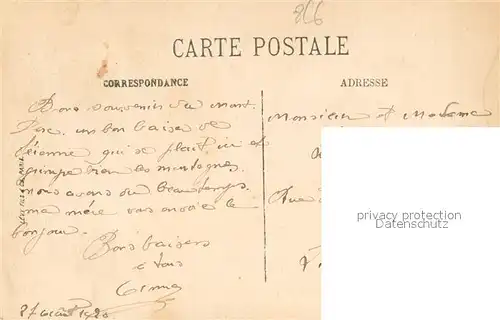 266
CARTE POSTALE
CORRESPONDANCE
ADRESSE
Bons souvenirs du Mont
Dore, un bon baiser de
qui se plait ici et
grimpe bien les montagnes
nous avons du beau temps
ma mère vous envoie le
bonjour.
Bons baisers
à tous
27 août 1920
Monsieur et Madame
Rue
privacy protection
www.oldthing.de